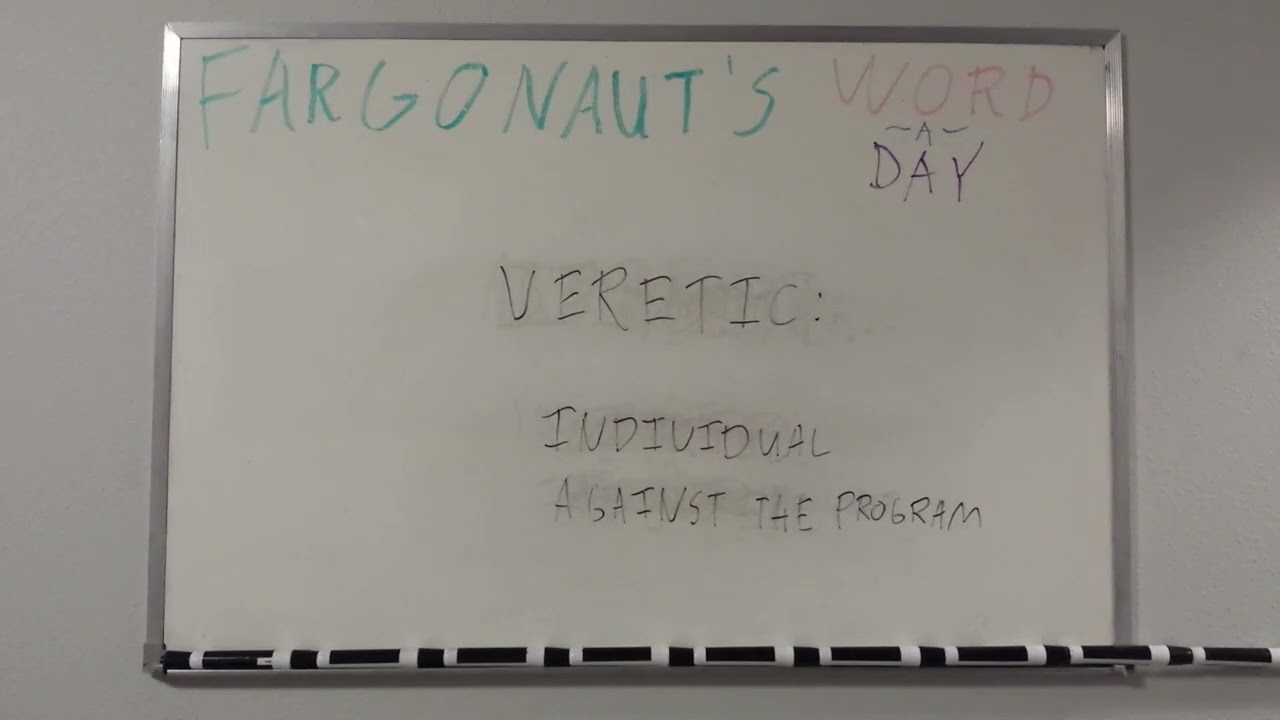 FARGONAUT'S WORD
~A~
DAY
VERETIC:
INDIVIDUAL
AGAINST THE PROGRAM